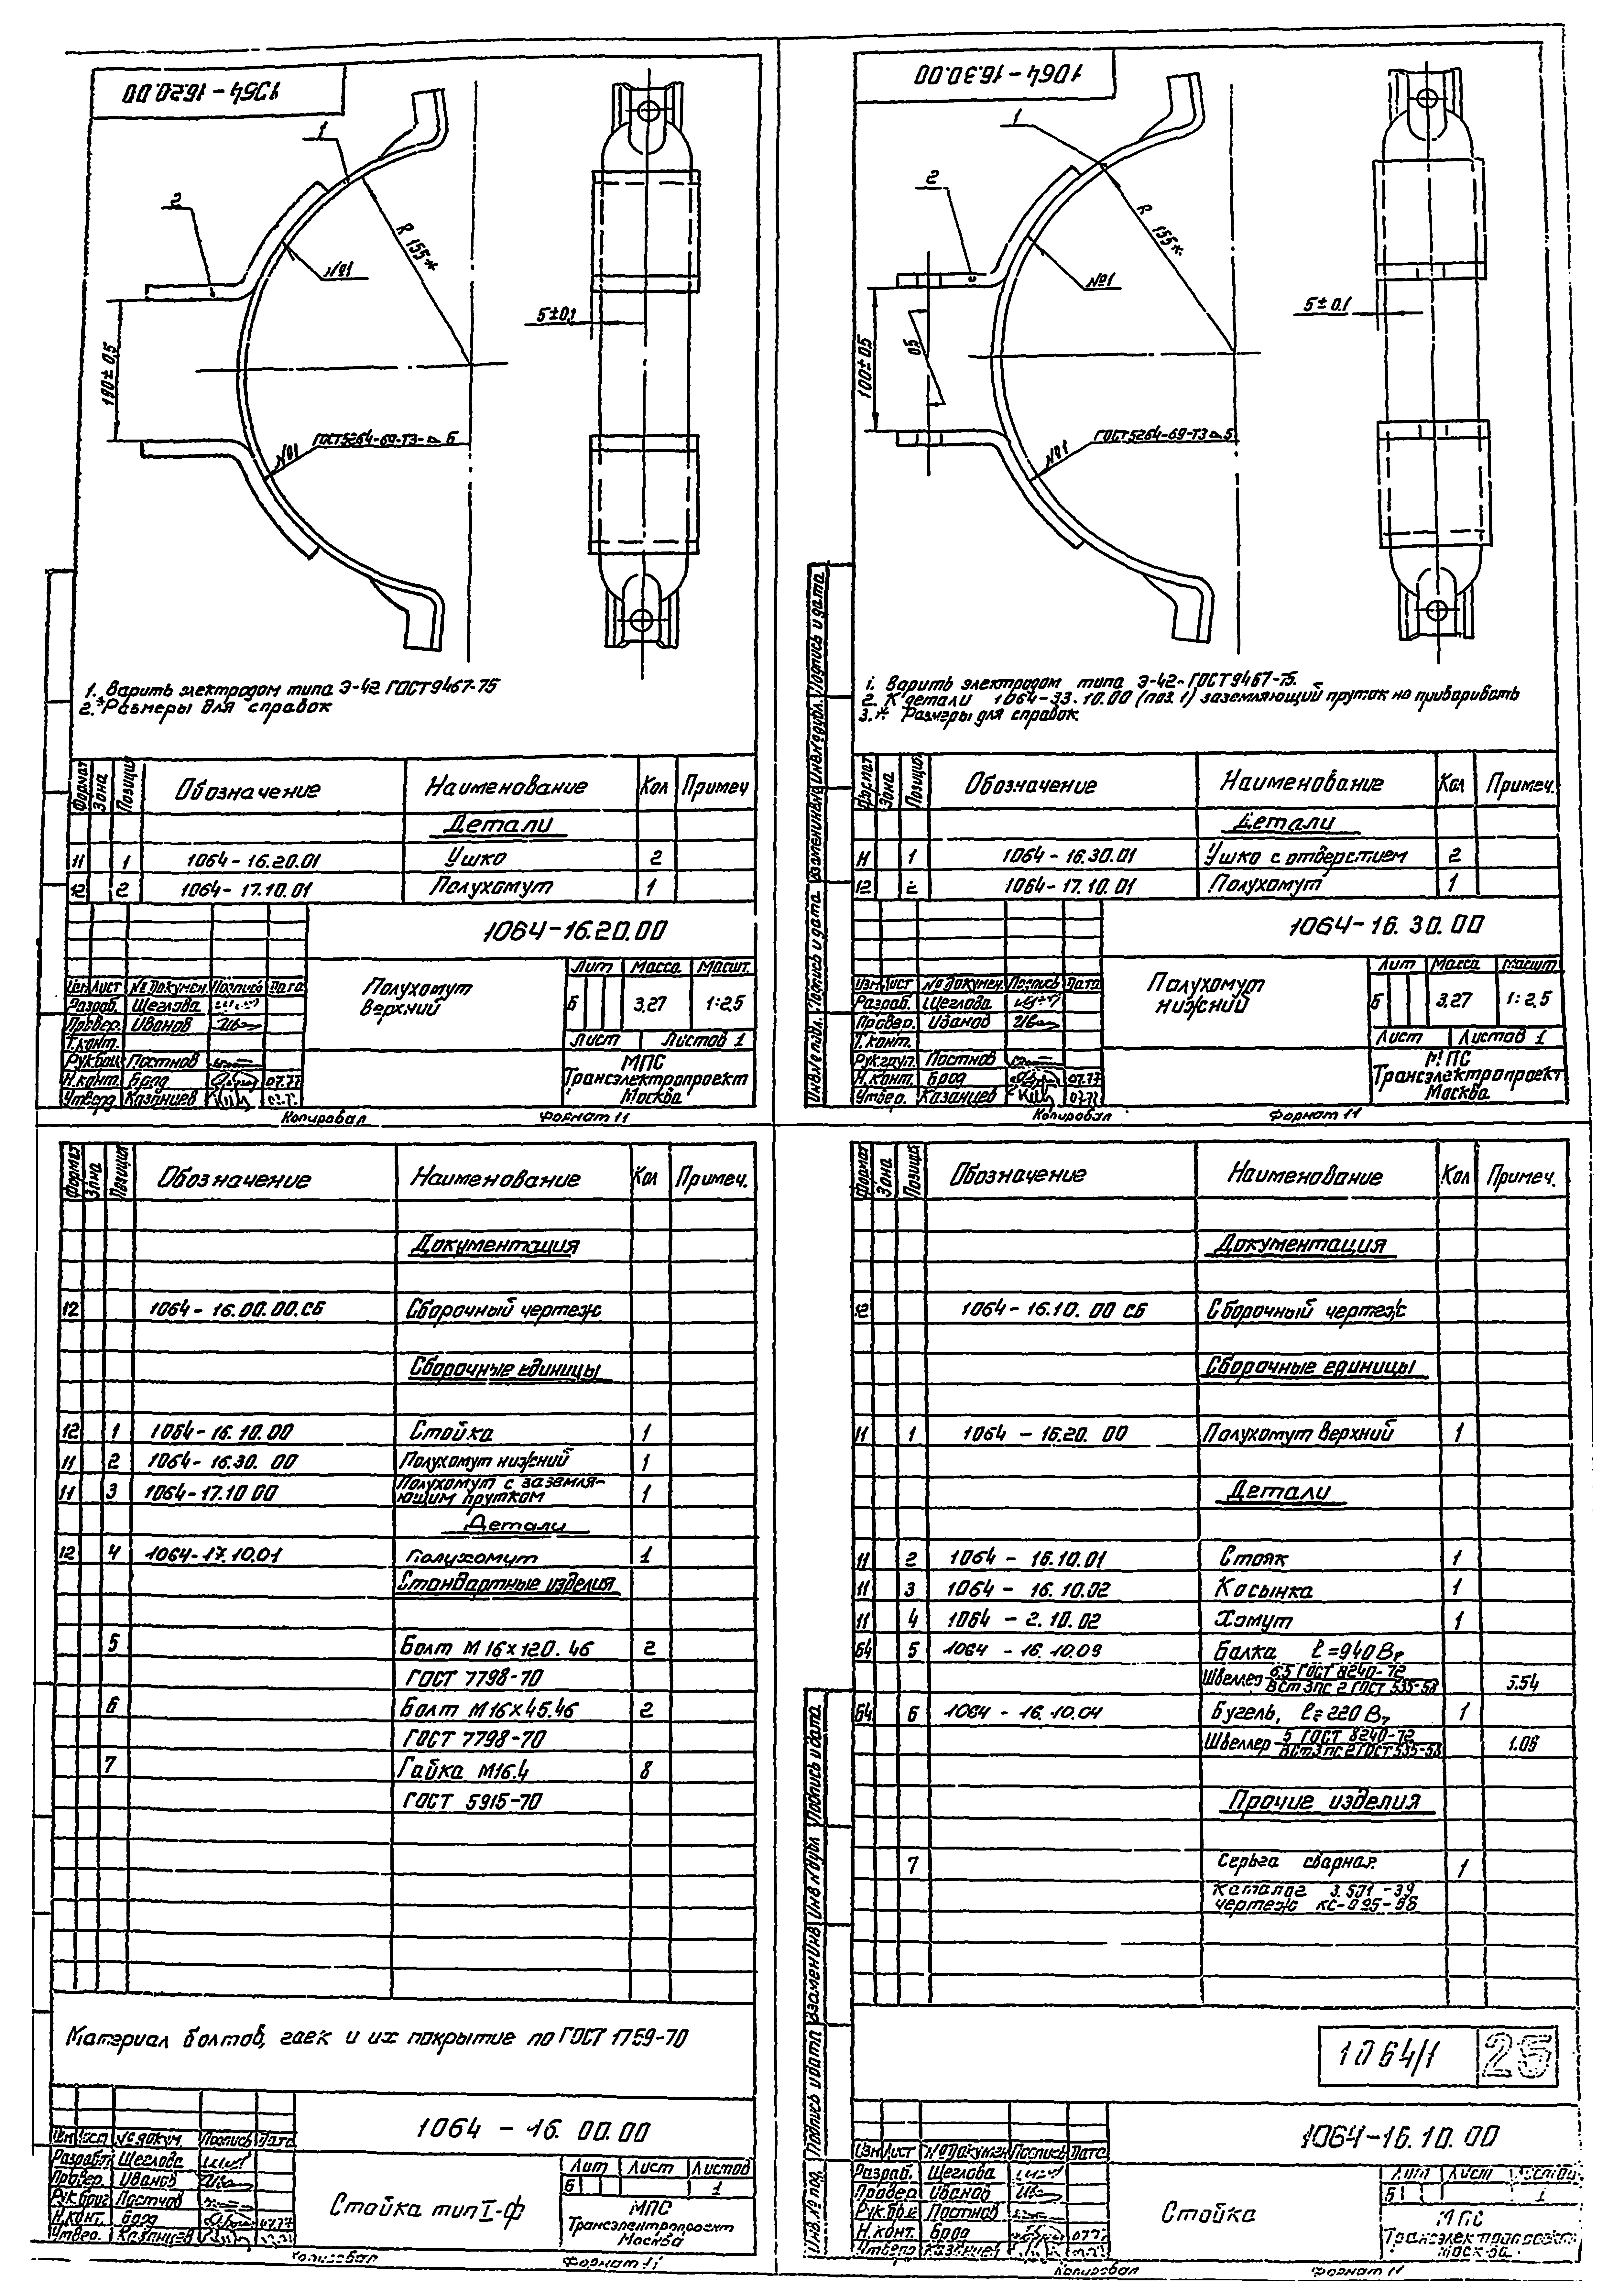 1064-16.20.00
1
2
R 155*
№1
5±0,1
190±0,5
№1
ГОСТ 5264-69-Т3-⊿ 6
1. Варить электродом типа Э-42 ГОСТ 9467-75
2.* Размеры для справок
Формат Зона Позиция Обозначение Наименование Кол Примеч
Детали
11 1 1064-16.20.01 Ушко 2
12 2 1064-17.10.01 Полухомут 1
1064-16.20.00
Полухомут
верхний
Лит Масса Масшт.
Б 3,27 1:2,5
Лист Листов 1
Изм Лист № Докумен. Подпись Дата
Разраб. Щеглова
Провер. Иванов
Т.конт.
Рук.бриг Постнов
Н.конт. Брод 07.77
Утверд Казанцев
МПС
Трансэлектропроект
Москва
Копировал Формат 11
1064-16.30.00
1
2
R 155*
№1
5±0.1
100±0.5
0,5
№1
ГОСТ 5264-69-Т3 ⊿ 5
1. Варить электродом типа Э-42-ГОСТ 9467-75.
2. К детали 1064-33.10.00 (поз.1) заземляющий пруток не приваривать
3.* Размеры для справок
Формат Зона Позиция Обозначение Наименование Кол Примеч.
Детали
11 1 1064-16.30.01 Ушко с отверстием 2
12 2 1064-17.10.01 Полухомут 1
1064-16.30.00
Полухомут
нижний
Лит Масса Масшт
Б 3,27 1:2,5
Лист Листов 1
Изм Лист № Докумен. Подпись Дата
Разраб. Щеглова
Провер. Иванов
Т.конт.
Рук.груп. Постнов
Н.конт. Брод 07.77
Утвер. Казанцев 07.77
МПС
Трансэлектропроект
Москва
Копировал Формат 11
Формат Зона Позиция Обозначение Наименование Кол Примеч.
Документация
12 1064-16.00.00.СБ Сборочный чертеж
Сборочные единицы
12 1 1064-16.10.00 Стойка 1
11 2 1064-16.30.00 Полухомут нижний 1
11 3 1064-17.10 00 Полухомут с заземля-
ющим прутком 1
Детали
12 4 1064-17.10.01 Полухомут 1
Стандартные изделия
5 Болт М16×120.46 2
ГОСТ 7798-70
6 Болт М16×45.46 2
ГОСТ 7798-70
7 Гайка М16.4 8
ГОСТ 5915-70
Материал болтов, гаек и их покрытие по ГОСТ 1759-70
1064-16.00.00
Изм Лист № докум Подпись Дата
Разработ Щеглова
Провер. Иванов
Рук.бриг Постнов
Н.конт. Брод 07.77
Утвер. Казанцев
Стойка тип I-ф
Лит Лист Листов
Б 1
МПС
Трансэлектропроект
Москва
Копировал Формат 11
Формат Зона Позиция Обозначение Наименование Кол Примеч.
Документация
12 1064-16.10.00 СБ Сборочный чертеж
Сборочные единицы
11 1 1064-16.20.00 Полухомут верхний 1
Детали
11 2 1064-16.10.01 Стояк 1
11 3 1064-16.10.02 Косынка 1
11 4 1064-2.10.02 Хомут 1
64 5 1064-16.10.03 Балка ℓ=940 В7
Швеллер 6,5 ГОСТ 8240-72
ВСт3пс2 ГОСТ 535-58 5.54
64 6 1064-16.10.04 Бугель, ℓ=220 В7 1
Швеллер 5 ГОСТ 8240-72
ВСт3пс2 ГОСТ 535-58 1.06
Прочие изделия
7 Серьга сварная 1
каталог 3.501-39
чертеж КС-095-96
1064/1 25
1064-16.10.00
Изм Лист № Докумен Подпись Дата
Разраб. Щеглова
Провер Иванов
Рук.бр. Постнов
Н.конт. Брод 07.77
Утверд Казанцев
Стойка
Лит Лист Листов
Б 1
МПС
Трансэлектропроект
Москва
Копировал Формат 11